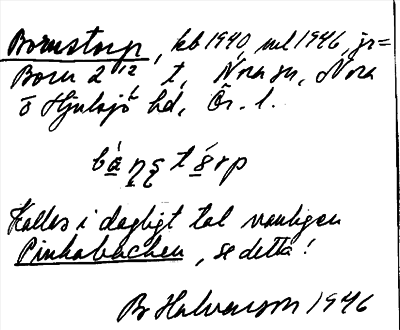 Bornstorp, kb 1940, ml 1946, jr=
Born 2¹² t, Nora sn, Nora
o Hjulsjö hd, Ör. l.
bà̱ṇṣtǻ̱rp
Kallas i dagligt tal vanligen
Pinkabacken, se detta!
Br Halvarson 1946